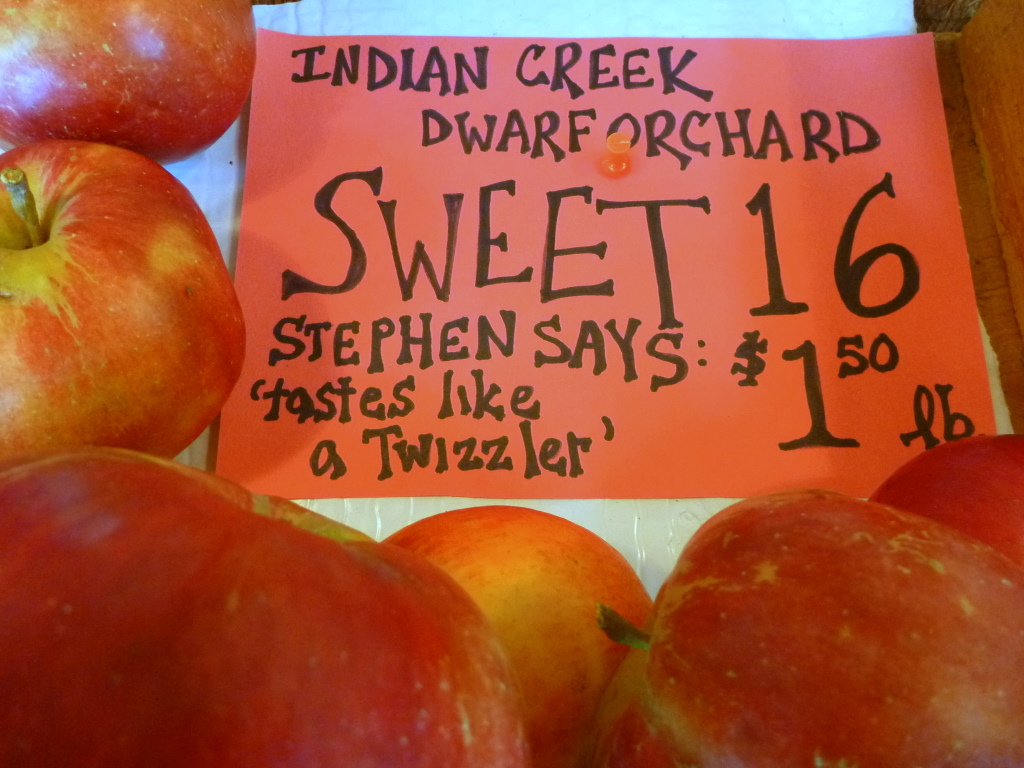 INDIAN CREEK
DWARF ORCHARD
SWEET 16
STEPHEN SAYS: $1.50 lb
'tastes like
a Twizzler'